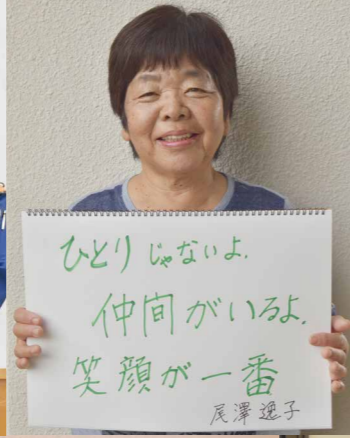 ひとりじゃないよ.
仲間がいるよ.
笑顔が一番
尾澤逸子